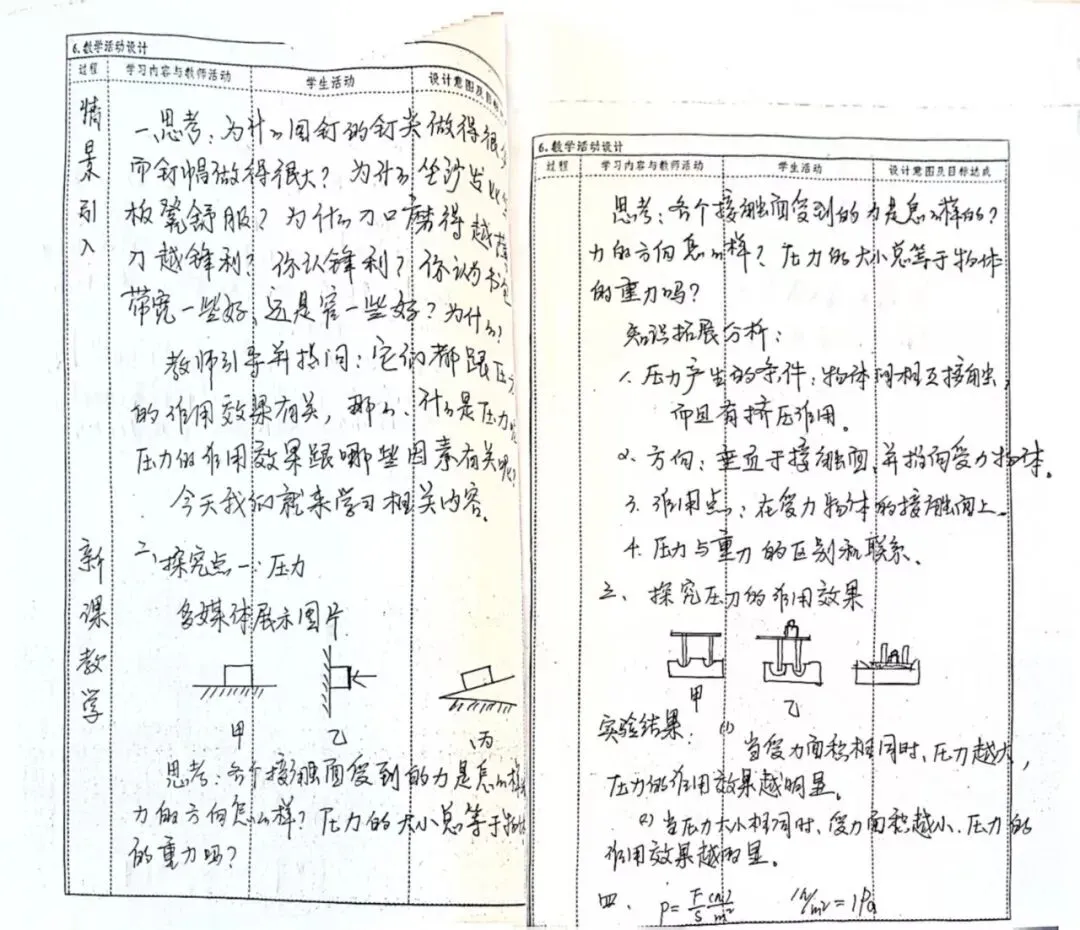 6.教学活动设计
过程 学习内容与教师活动 学生活动 设计意图及目标
情景引入
一.思考：为什么图钉的钉尖做得很
而钉帽做得很大？为什么坐沙发比坐
板凳舒服？为什么刀口磨得越薄
刀越锋利？你认锋利？你认为书包
带宽一些好、还是窄一些好？为什么？
教师引导并提问：它们都跟压力
的作用效果有关，那么、什么是压力
压力的作用效果跟哪些因素有关呢？
今天我们就来学习相关内容。
新课教学
二、探究点一：压力
多媒体展示图片
甲 乙 丙
思考：各个接触面受到的力是怎么样
力的方向怎么样？压力的大小总等于物体
的重力吗？
6.教学活动设计
过程 学习内容与教师活动 学生活动 设计意图及目标达成
思考：各个接触面受到的力是怎么样的？
力的方向怎么样？压力的大小总等于物体
的重力吗？
知识拓展分析：
1.压力产生的条件：物体间相互接触，
而且有挤压作用。
2.方向：垂直于接触面，并指向受力物体。
3.作用点：在受力物体的接触面上。
4.压力与重力的区别和联系。
三、探究压力的作用效果
甲 乙
实验结果：(1)
当受力面积相同时、压力越大，
压力的作用效果越明显。
(2)当压力大小相同时、受力面积越小、压力的
作用效果越明显。
四、 P=F/S 1N/m²=1Pa